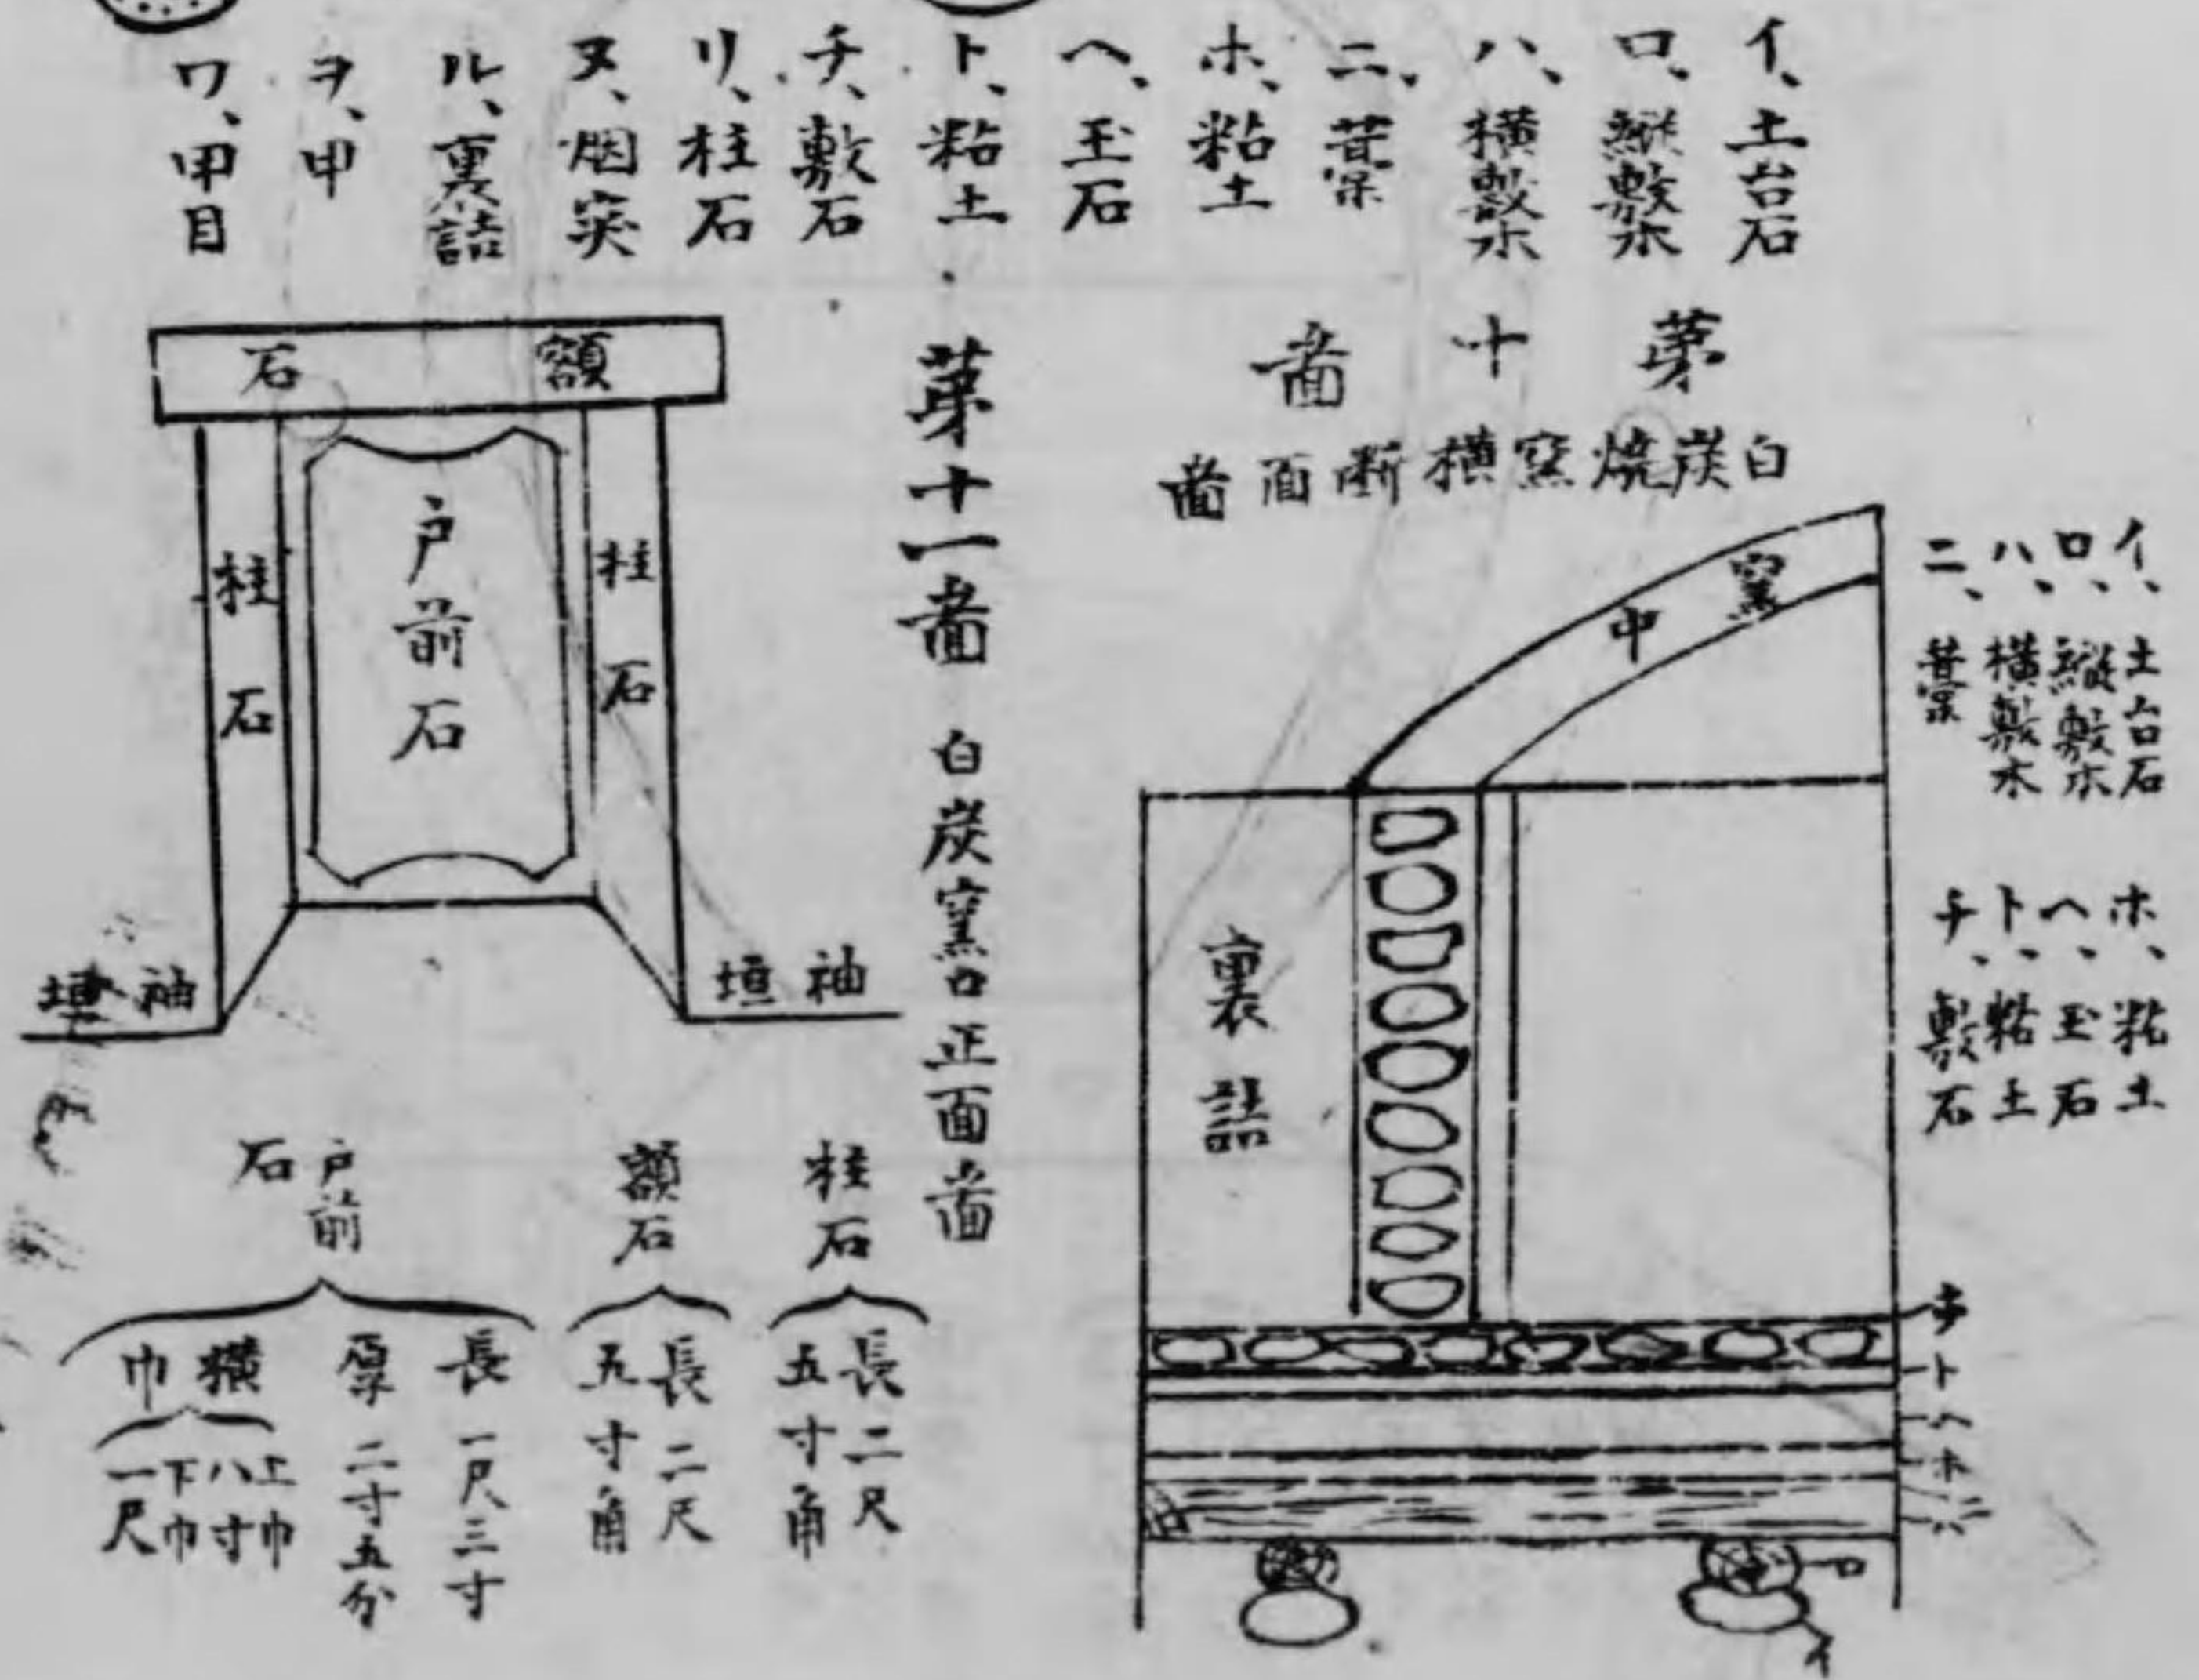 イ、土台石
ロ、縦敷木
ハ、横敷木
ニ、葺簗
ホ、粘土
ヘ、玉石
ト、粘土
チ、敷石
リ、柱石
ヌ、烟突
ル、裏詰
ヲ、甲
ワ、甲目
第十啚
白炭焼窯横断面啚
イ、土台石
ロ、縦敷木
ハ、横敷木
ニ、
ホ、粘土
ヘ、玉石
ト、粘土
チ、敷石
窯甲
裏詰
チ
ト
ヘ
ホ
ニ
ハ
ロ
イ
第十一啚 白炭窯口正面啚
額石
柱石
戸前石
柱石
袖垣
袖垣
柱石
長二尺
五寸角
額石
長二尺
五寸角
戸前石
長一尺三寸
厚二寸五分
横巾
上巾八寸
下巾一尺